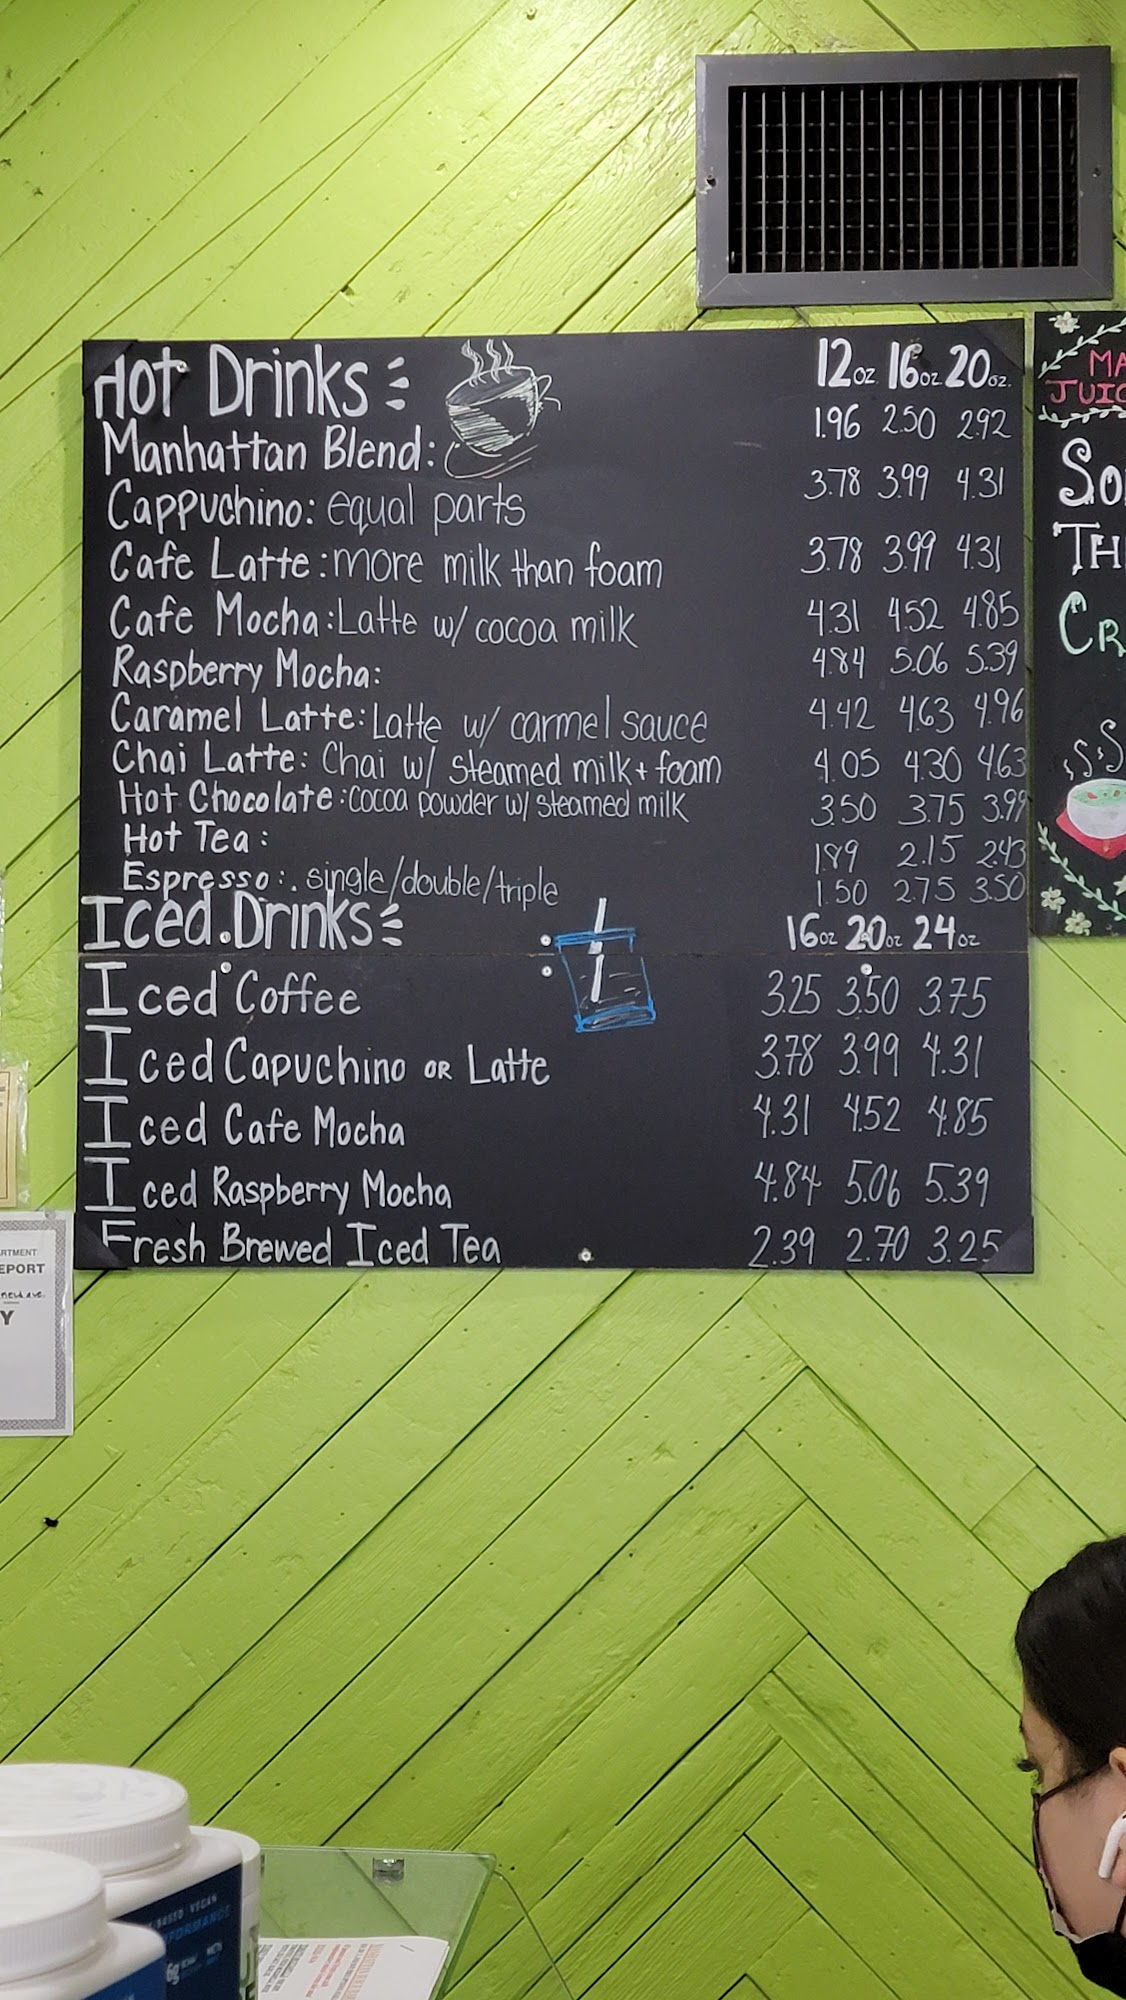 Hot Drinks 12oz. 16oz. 20oz.
Manhattan Blend: 1.96 2.50 2.92
Cappuchino: equal parts 3.78 3.99 4.31
Cafe Latte: more milk than foam 3.78 3.99 4.31
Cafe Mocha: Latte w/ cocoa milk 4.31 4.52 4.85
Raspberry Mocha: 4.84 5.06 5.39
Caramel Latte: Latte w/ carmel sauce 4.42 4.63 4.96
Chai Latte: Chai w/ steamed milk + foam 4.05 4.30 4.63
Hot Chocolate: cocoa powder w/ steamed milk 3.50 3.75 3.99
Hot Tea: 1.89 2.15 2.43
Espresso: single/double/triple 1.50 2.75 3.50
Iced Drinks 16oz 20oz 24oz
Iced Coffee 3.25 3.50 3.75
Iced Capuchino or Latte 3.78 3.99 4.31
Iced Cafe Mocha 4.31 4.52 4.85
Iced Raspberry Mocha 4.84 5.06 5.39
Fresh Brewed Iced Tea 2.39 2.70 3.25